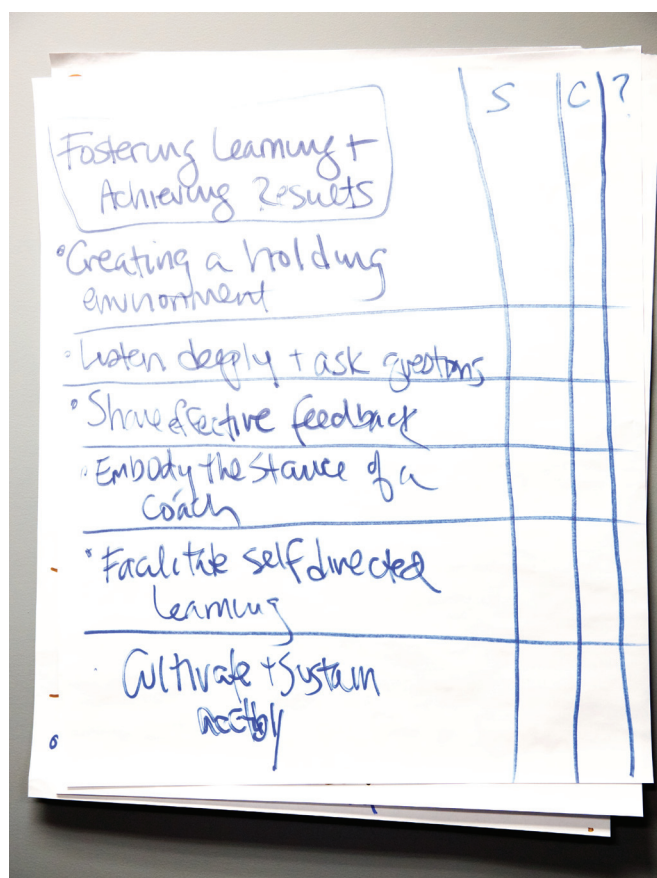 S C ?
Fostering Learning +
Achieving Results
• Creating a holding
environment
• Listen deeply + ask questions
• Share effective feedback
• Embody the stance of a
coach
• Facilitate self directed
Learning
• Cultivate + Sustain